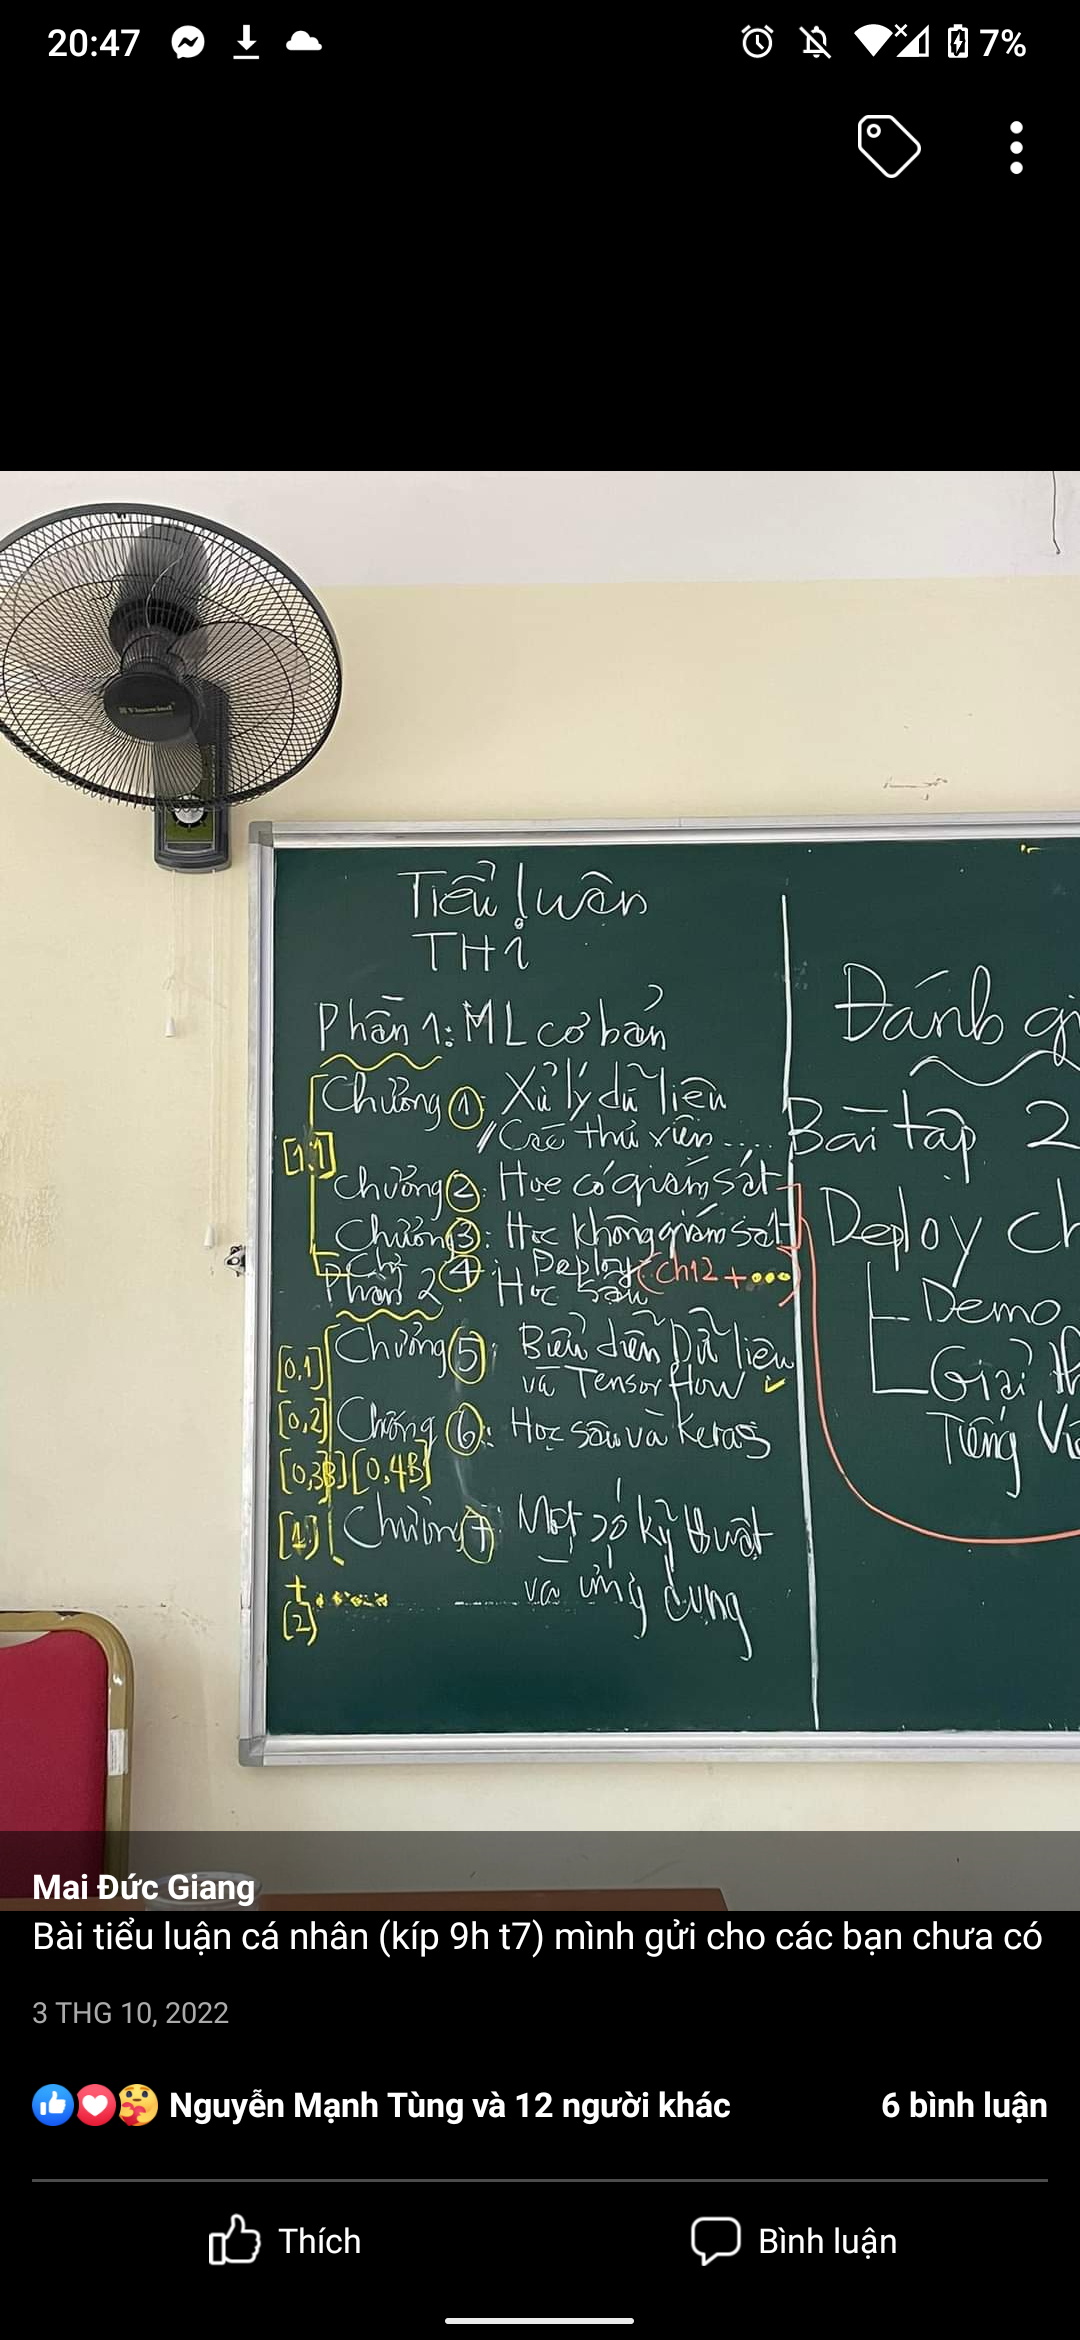 20:47
7%
Tiểu luận
THi
Phần 1: ML cơ bản
Chương 1: Xử lý dữ liệu
// Các thư viện ....
[1.1]
Chương 2: Học có giám sát
Chương 3: Học không giám sát
Ch 4: Deploy (ch12 + ...)
Phần 2: Học sâu
[0,1] Chương 5: Biểu diễn Dữ liệu
và Tensorflow
[0,2] Chương 6: Học sâu và Keras
[0,3B] [0,4B]
[1] Chương 7: Một số kỹ thuật
và ứng dụng
+ .....
[2]
Đánh gi
Bài tập 2
Deploy ch
Demo
Giải th
Tiếng Vi
Mai Đức Giang
Bài tiểu luận cá nhân (kíp 9h t7) mình gửi cho các bạn chưa có
3 THG 10, 2022
Nguyễn Mạnh Tùng và 12 người khác
6 bình luận
Thích
Bình luận